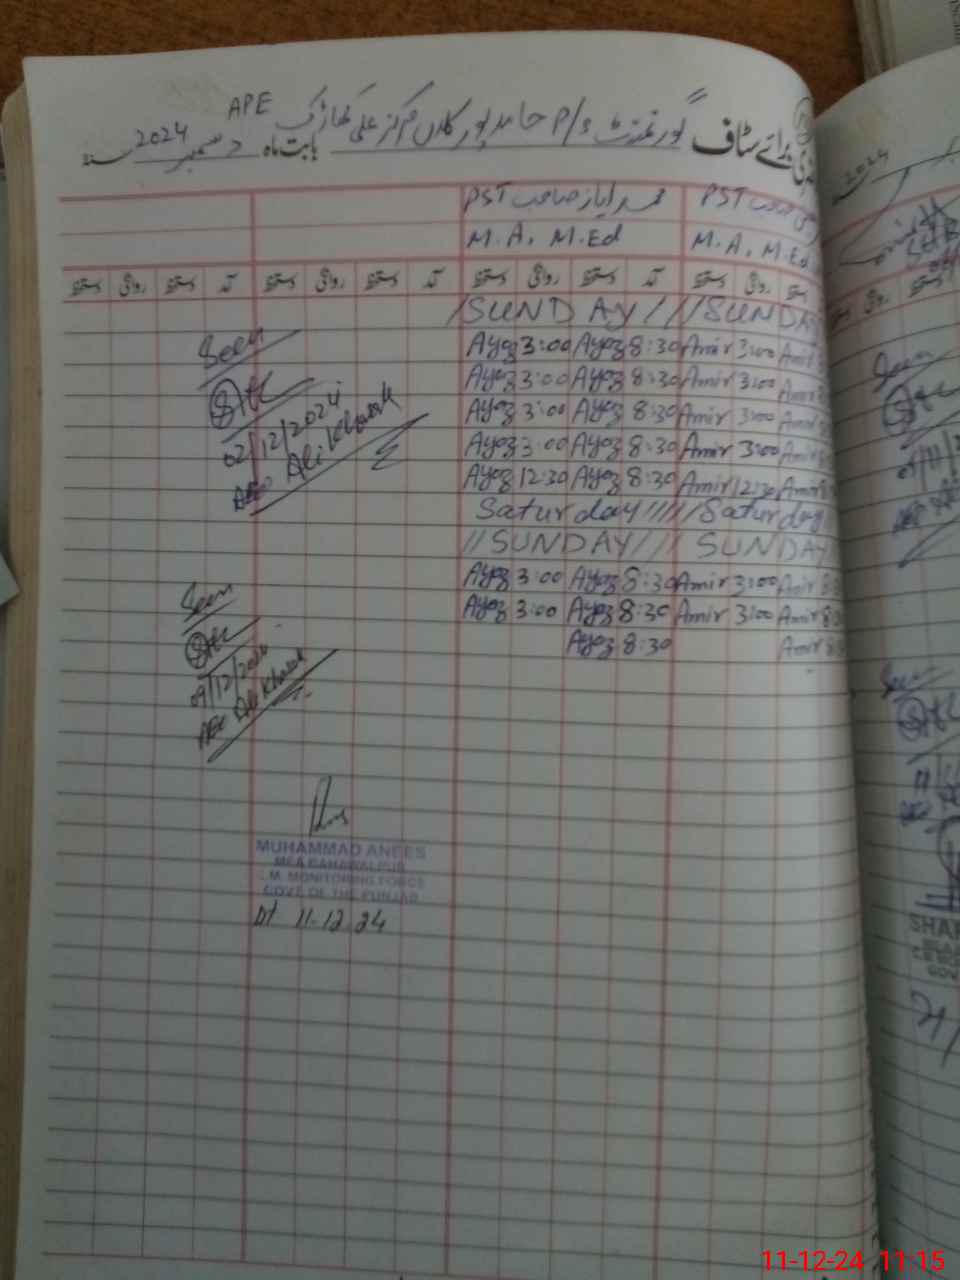 برائے سٹاف گورنمنٹ P/S حامد پور کلاں مرکز علی کھاڑک بابت ماہ دسمبر 2024 سنہ
APE
محمد ایاز صاحب PST
PST
M.A, M.Ed
M.A, M.Ed
آمد دستخط روانگی دستخط آمد دستخط روانگی دستخط آمد دستخط روانگی دستخط
/SUNDAY////SUNDAY
Ayaz 3:00 Ayaz 8:30 Amir 3:00 Amir
Ayaz 3:00 Ayaz 8:30 Amir 3:00 Amir
Ayaz 3:00 Ayaz 8:30 Amir 3:00 Amir
Ayaz 3:00 Ayaz 8:30 Amir 3:00 Amir
Ayaz 12:30 Ayaz 8:30 Amir 12:30 Amir
Saturday/////Saturday
//SUNDAY/// SUNDAY
Ayaz 3:00 Ayaz 8:30 Amir 3:00 Amir
Ayaz 3:00 Ayaz 8:30 Amir 3:00 Amir
Ayaz 8:30 Amir
Seen
02/12/2024
AEO Ali Kharak
Seen
09/12/2024
AEO Ali Kharak
MUHAMMAD ANEES
MEA BAHAWALPUR
C.M. MONITORING FORCE
GOVT OF THE PUNJAB
Dt 11.12.24
2024
Seen
Seen
SHA
GOV
11-12-24 11:15